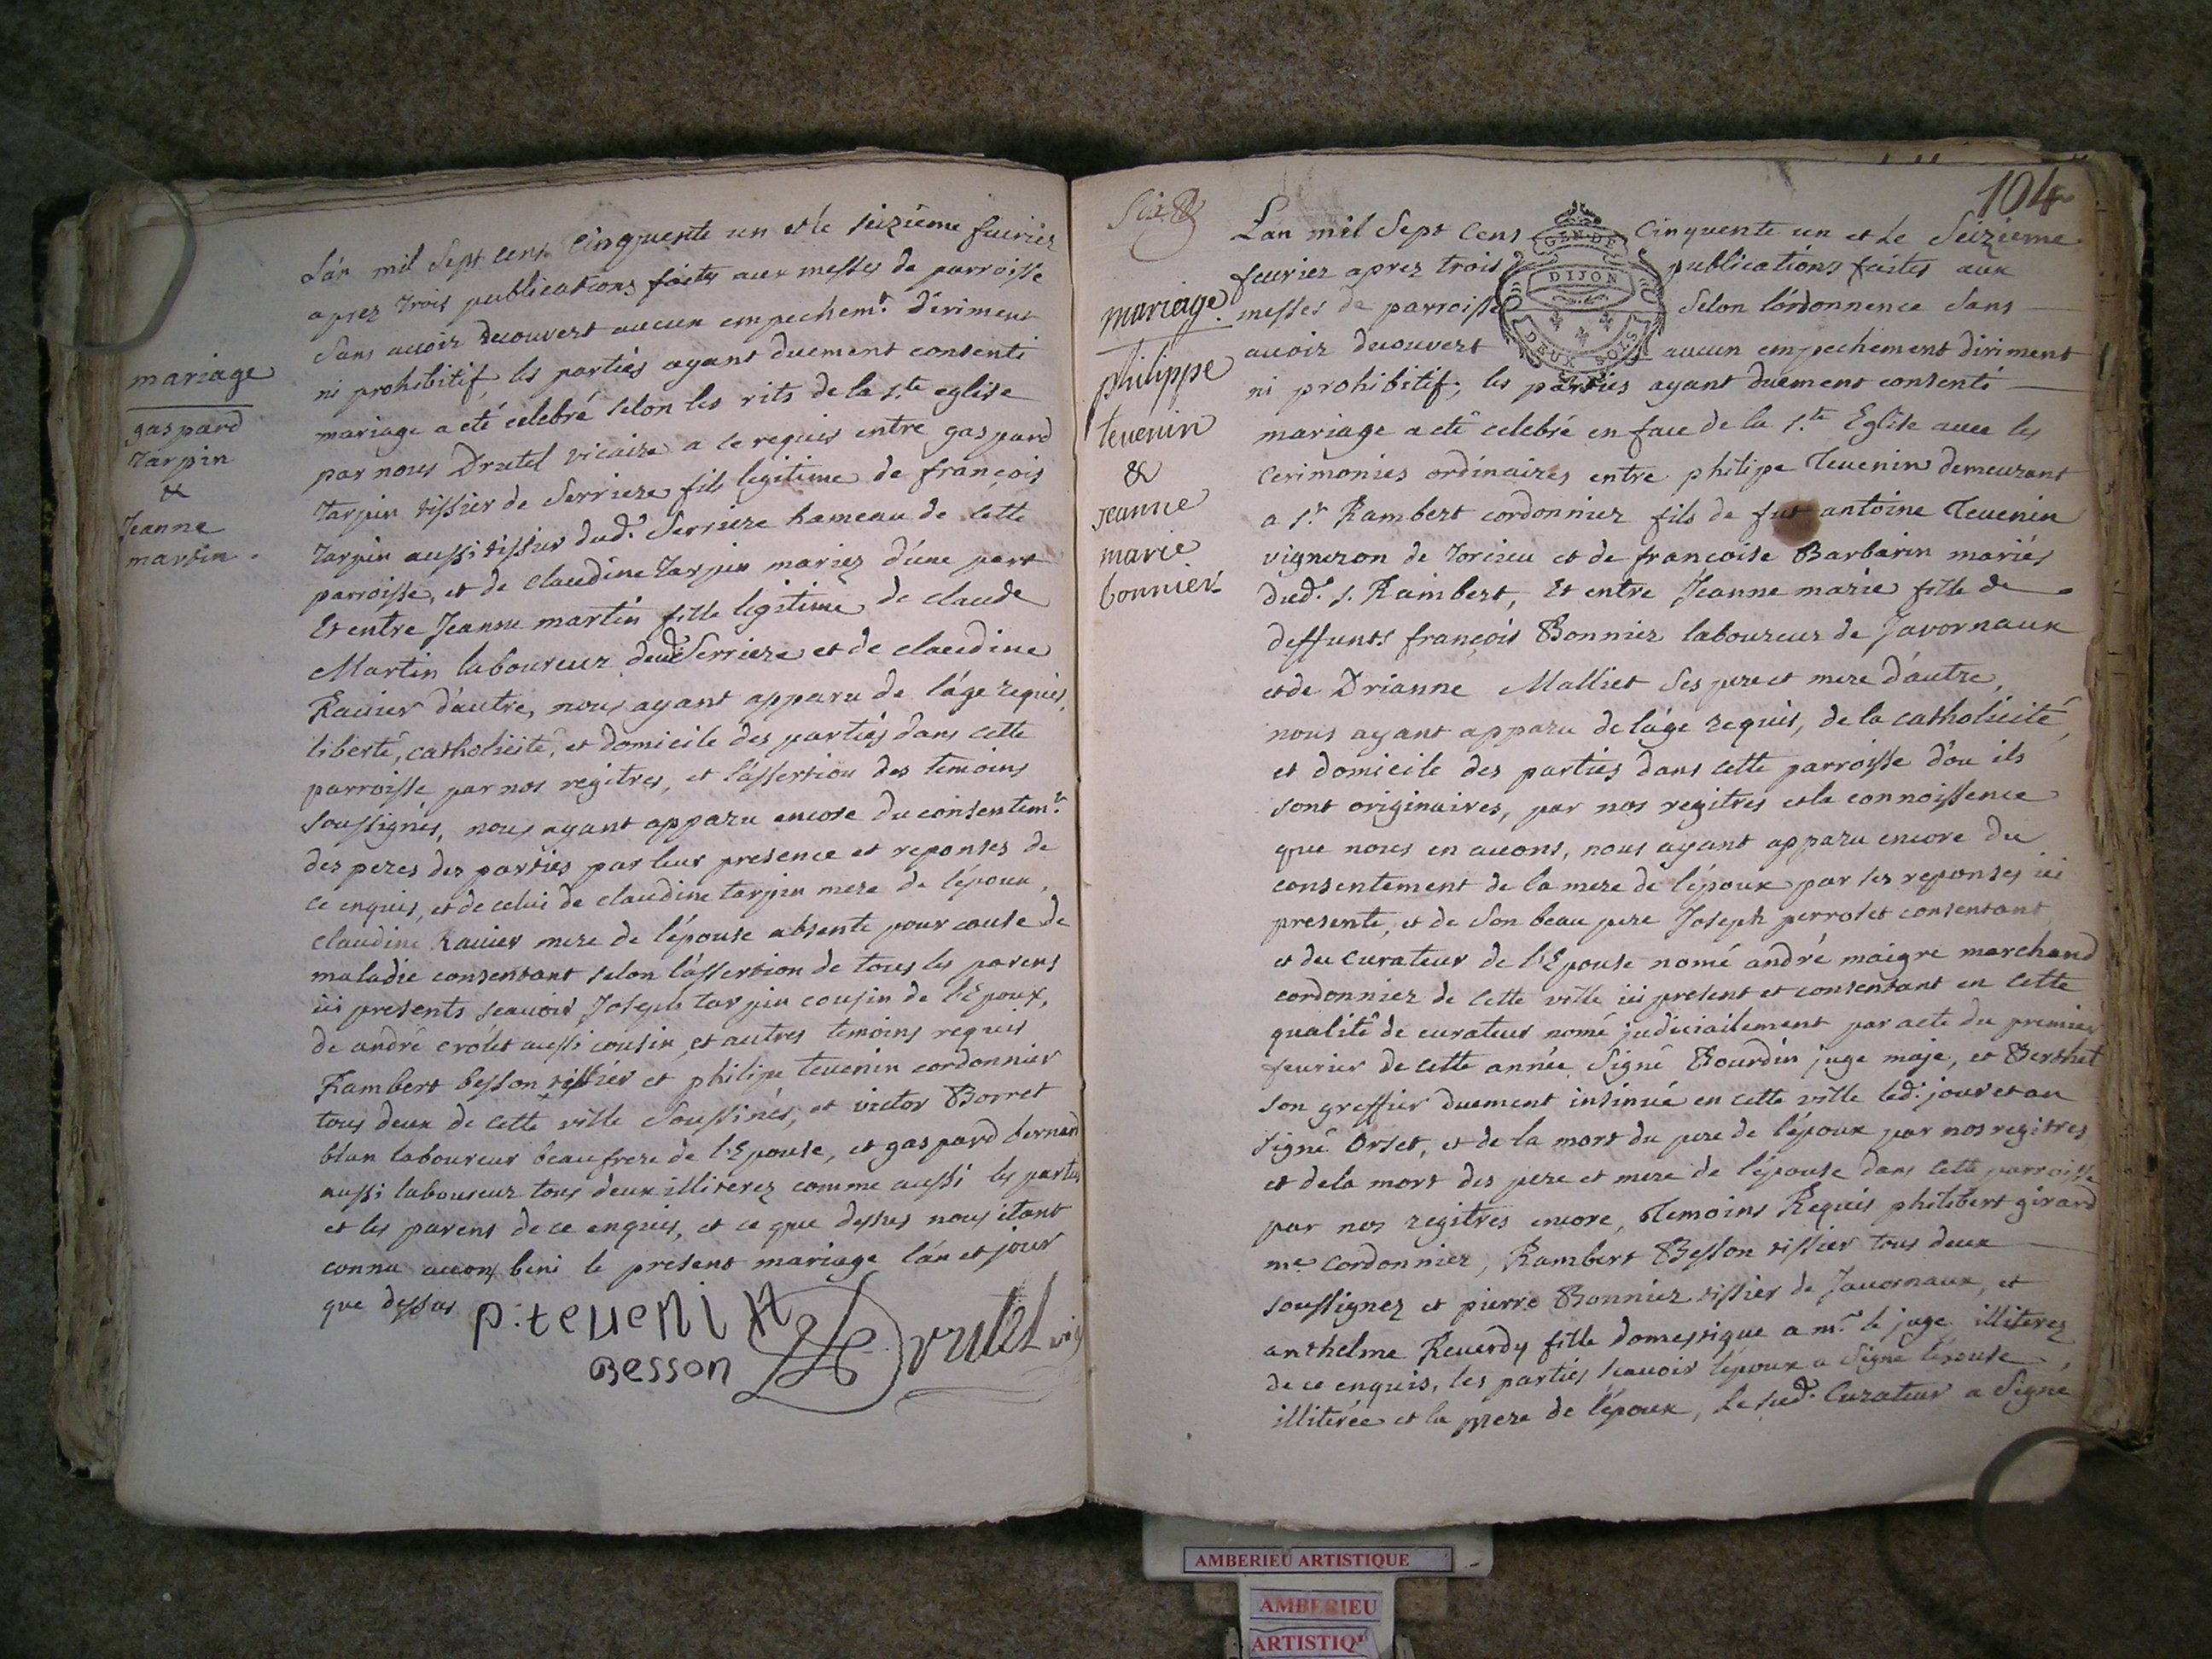 mariage
gaspard
tarpin
&
Jeanne
martin.
L'an mil Sept cens Cinquente un et le seizième feurier
aprez trois publications faites aux messes de parroisse
sans auoir decouvert aucun empechemt. diriment
ni prohibitif, les parties ayant duement consenti
mariage a eté celebré selon les rits de la ste eglise
par nous Drutel vicaire a ce requis entre gaspard
tarpin tissier de Serriere fils legitime de françois
tarpin aussi tissier dud. Serriere hameau de cette
parroisse, et de claudine tarpin mariez d'une part
Et entre Jeanne martin fille legitime de claude
Martin laboureur dud Serriere et de claudine
Rauier d'autre, nous ayant apparu de l'âge requis,
liberté, catholicité, et domicile des parties dans cette
parroisse par nos regitres, et l'assertion des temoins
soussignés, nous ayant apparu encore du consentemt.
des peres des parties par leur presence et reponses de
ce enquis, et de celui de claudine tarpin mere de l'époux,
claudine Rauier mere de l'épouse absente pour cause de
maladie consentant selon l'assertion de tous les parens
ici presents scauoir Joseph tarpin cousin de l'Epoux,
de andré crolet aussi cousin, et autres temoins requis
Rambert besson tissier et philipe teuenin cordonnier
tous deux de cette ville Soussinés, et victor Borret
blan laboureur beaufrere de l'Epouse, et gaspard bernard
aussi laboureur tous deux illiterez comme aussi les parties
et les parens de ce enquis, et ce que dessus nous étant
connu auons beni le present mariage l'an et jour
que dessus
P. teueniN
Besson Drutel vic
104
Six
mariage.
philippe
teuenin
&
jeanne
marie
bonnier
GEN. DE
DIJON
DEUX SOLS
L'an mil Sept Cens Cinquente un et le Seizieme
feurier aprez trois publications faites aux
messes de parroisse Selon l'ordonnence Sans
auoir decouvert aucun empechement diriment
ni prohibitif, les parties ayant duement consenti
mariage a eté celebré en face de la Ste Eglise auec les
cerimonies ordinaires entre philipe Teuenin demeurant
a St Rambert cordonnier fils de fut antoine Teuenin
vigneron de torcieu et de francoise Barbarin mariés
dud. S. Rambert, Et entre Jeanne marie fille de
deffunts françois Bonnier laboureur de Javornaux
et de Drianne Malliet Ses pere et mere d'autre,
nous ayant apparu de l'âge requis, de la catholicité,
et domicile des parties dans cette parroisse d'ou ils
sont originaires, par nos regitres et la connoissence
que nous en auons, nous ayant apparu encore du
consentement de la mere de l'époux par ses reponses ici
presente, et de Son beau pere Joseph perrolet consentant
et du curateur de l'Epouse nomé andré maigre marchand
cordonnier de cette ville ici present et consentant en cette
qualité de curateur nomé judiciairement par acte du premier
feurier de cette année Signé Bourdin juge maje, et Berthet
son greffier duement insinué en cette ville led. jour et an
signé Orset, et de la mort du pere de l'époux par nos regitres
et de la mort des pere et mere de l'épouse dans cette parroisse
par nos regitres encore, temoins Requis philibert girard
me cordonnier, Rambert Besson tissier tous deux
soussignez et pierre Bonnier tissier de Javornaux, et
anthelme Reuerdy fille domestique a mr. le juge illiterez
de ce enquis, les parties scauoir l'époux a Signé l'épouse
illiterée et la mere de l'époux, Le sud. Curateur a Signé
AMBERIEU ARTISTIQUE
AMBERIEU
ARTISTIQ